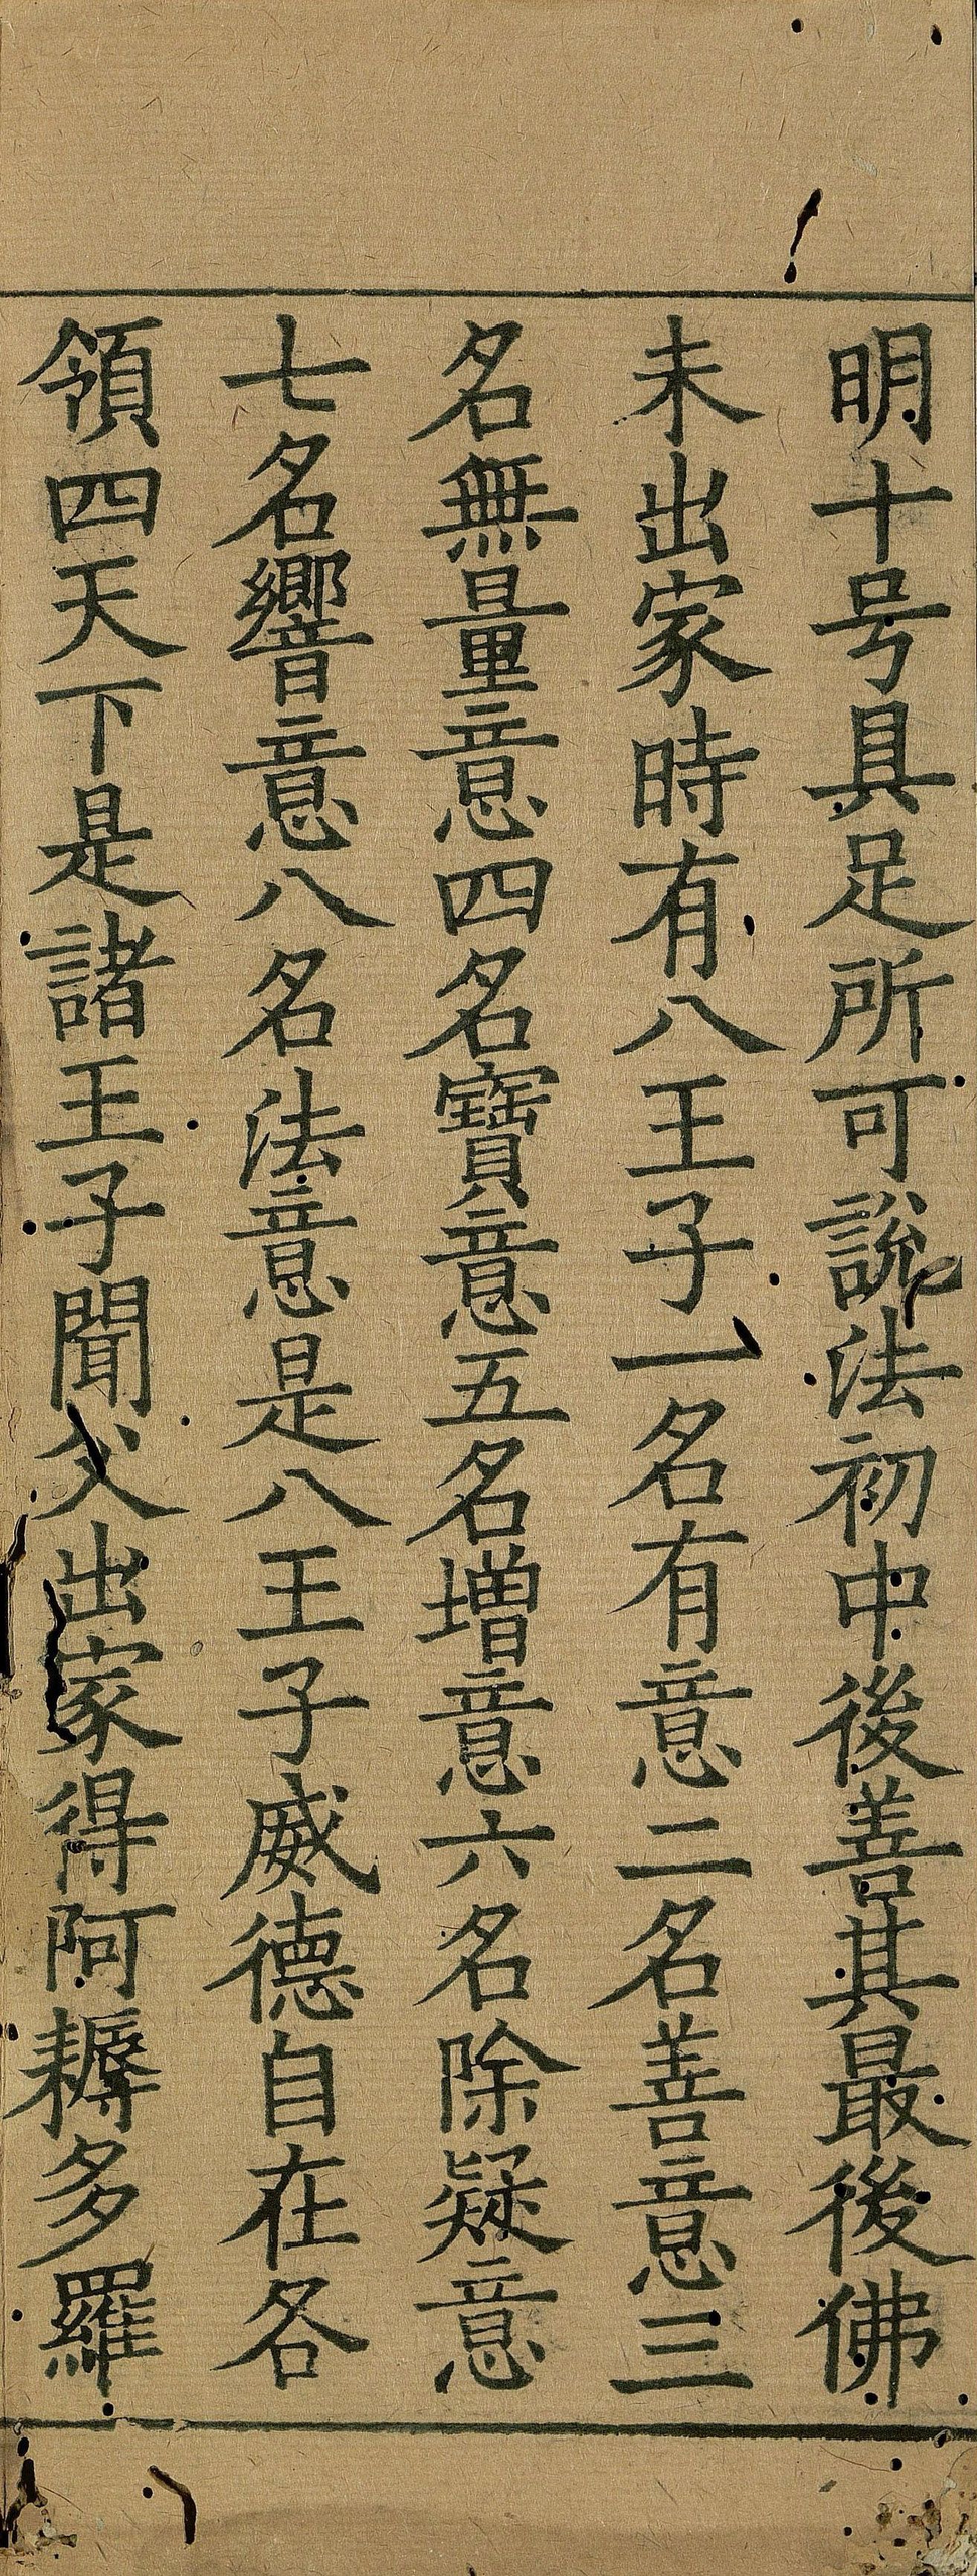 明十号具足所可說法初中後善其最後佛
未出家時有八王子一名有意二名善意三
名無量意四名寶意五名增意六名除疑意
七名響意八名法意是八王子威德自在各
領四天下是諸王子聞父出家得阿耨多羅